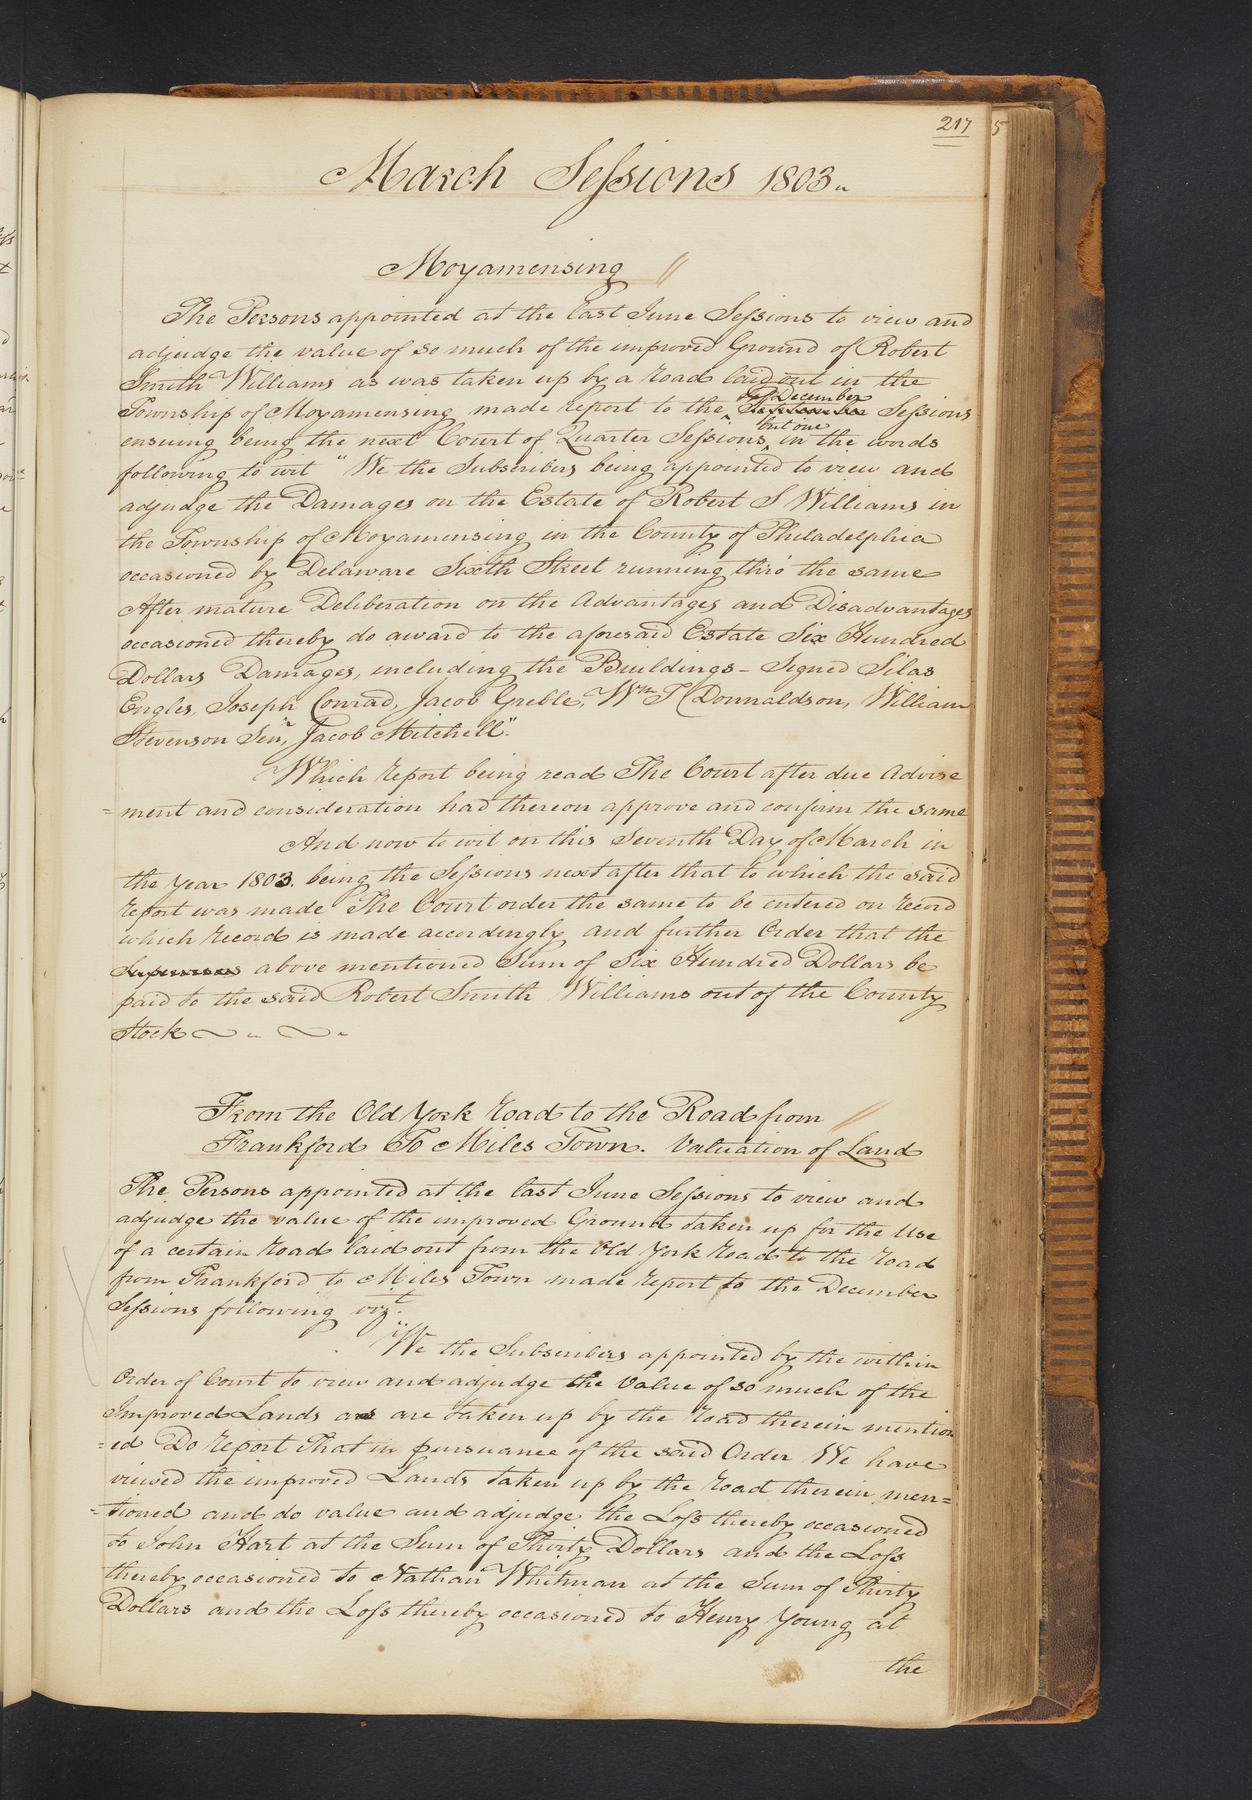 217
March Sessions 1803
Moyamensing
The Persons appointed at the last June Sessions to view and
adjudge the value of so much of the improved Ground of Robert
Smith Williams as was taken up by a road laid out in the
December
Township of Moyamensing made report to the Sessions
but one
ensuing being the next Court of Quarter Sessions, in the words
following to wit "We the Subscribers being appointed to view and
adjudge the Damages on the Estate of Robert S Williams in
the Township of Moyamensing in the County of Philadelphia
occasioned by Delaware Sixth Street running thro' the same
After mature Deliberation on the Advantages and Disadvantages
occasioned thereby do award to the aforesaid Estate Six Hundred
Dollars Damages, including the Buildings - Signed Silas
Engles, Joseph Conrad, Jacob Greble, Wm T Donnaldson, William
Stevenson Senr, Jacob Mitchell."
Which report being read The Court after due Advise
=ment and consideration had thereon approve and confirm the same
And now to wit on this Seventh Day of March in
the Year 1803. being the Sessions next after that to which the said
report was made The Court order the same to be entered on record
which record is made accordingly and further Order that the
above mentioned Sum of Six Hundred Dollars be
paid to the said Robert Smith Williams out of the County
Stock
From the Old York road to the Road from
Frankford To Miles Town. Valuation of Land
The Persons appointed at the last June Sessions to view and
adjudge the value of the improved Ground taken up for the Use
of a certain road laid out from the Old York road to the road
from Frankford to Miles Town made report to the December
Sessions following vizt.
"We the Subscribers appointed by the within
Order of Court to view and adjudge the Value of so much of the
Improved Lands as are taken up by the road therein mention
=ed Do report That in pursuance of the said Order We have
viewed the improved Lands taken up by the road therein men=
=tioned and do value and adjudge the Loss thereby occasioned
to John Hart at the Sum of Thirty Dollars and the Loss
thereby occasioned to Nathan Whitman at the Sum of Thirty
Dollars and the Loss thereby occasioned to Henry Young at
the